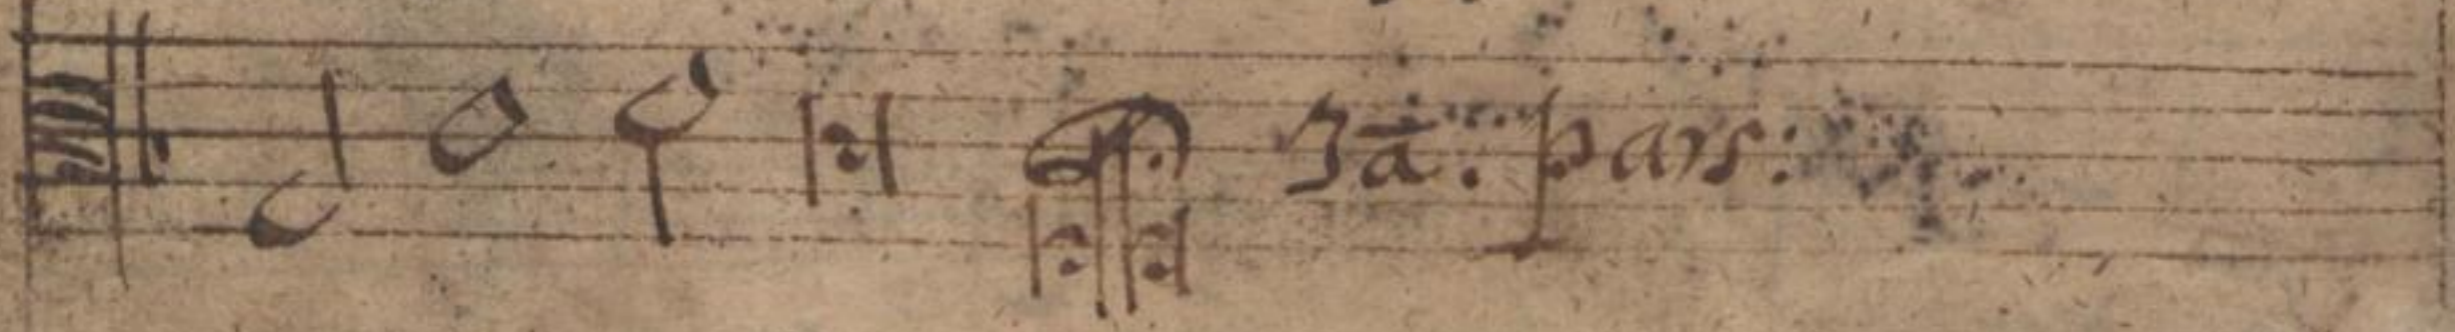 3ā. pars: